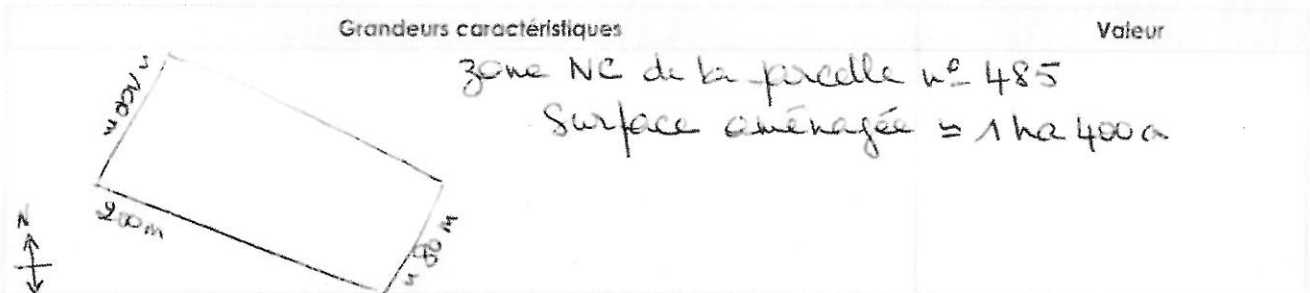 Grandeurs caractéristiques Valeur
zone NC de la parcelle nº 485
Surface aménagée ≃ 1 ha 400a
~ 100 m
200 m
~ 80 m
N